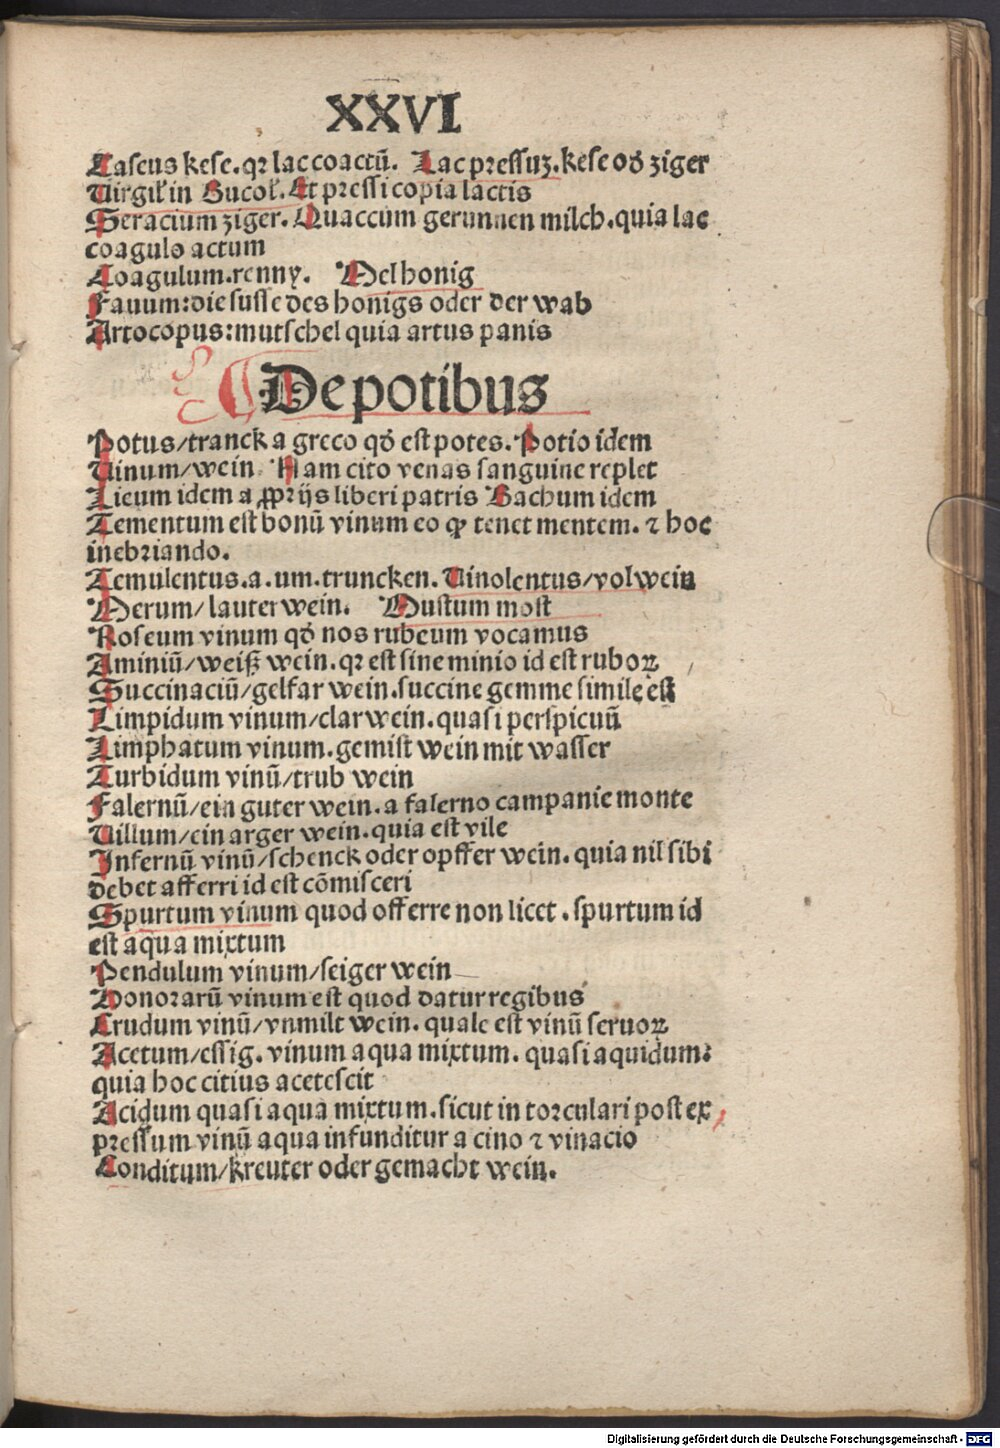 XXVI
Caseus kese. qꝛ lac coactū. Lac pressuꝫ. kese oď ziger
Uirgiƚ in Bucoƚ. Et pressi copia lactis
Seracium ziger. Quaccum gerunnen milch. quia lac
coagulo actum
Coagulum. renny. Mel honig
Fauum: die susse des honigs oder der wab
Artocopus: mutschel quia artus panis
De potibus
Potus/ tranck a greco qď est potes. Potio idem
Uinum/ wein Nam cito venas sanguine replet
Lieum idem a ꝓprijs liberi patris Bachum idem
Tementum est bonū vinum eo ꝙ tenet mentem. ⁊ hoc
inebriando.
Temulentus. a. um. truncken. Uinolentus/ vol wein
Merum/ lauter wein. Mustum most
Roseum vinum qď nos rubeum vocamus
Aminiū/ weiß wein. qꝛ est sine minio id est ruboꝝ
Succinaciū/ gelfar wein. succine gemme simile est
Limpidum vinum/ clar wein. quasi perspicuū
Limphatum vinum. gemist wein mit wasser
Turbidum vinū/ trub wein
Falernū/ ein guter wein. a falerno campanie monte
Uillum/ ein arger wein. quia est vile
Infernū vinū/ schenck oder opffer wein. quia nil sibi
debet afferri id est cōmisceri
Spurtum vinum quod offerre non licet. spurtum id
est aqua mixtum
Pendulum vinum/ seiger wein
Honorarū vinum est quod datur regibus
Crudum vinū/ vnmilt wein. quale est vinū seruoꝝ
Acetum/ essig. vinum aqua mixtum. quasi aquidum:
quia hoc citius acetescit
Acidum quasi aqua mixtum. sicut in torculari post ex
pressum vinū aqua infunditur a cino ⁊ vinacio
Conditum/ kreuter oder gemacht wein.
Digitalisierung gefördert durch die Deutsche Forschungsgemeinschaft - DFG